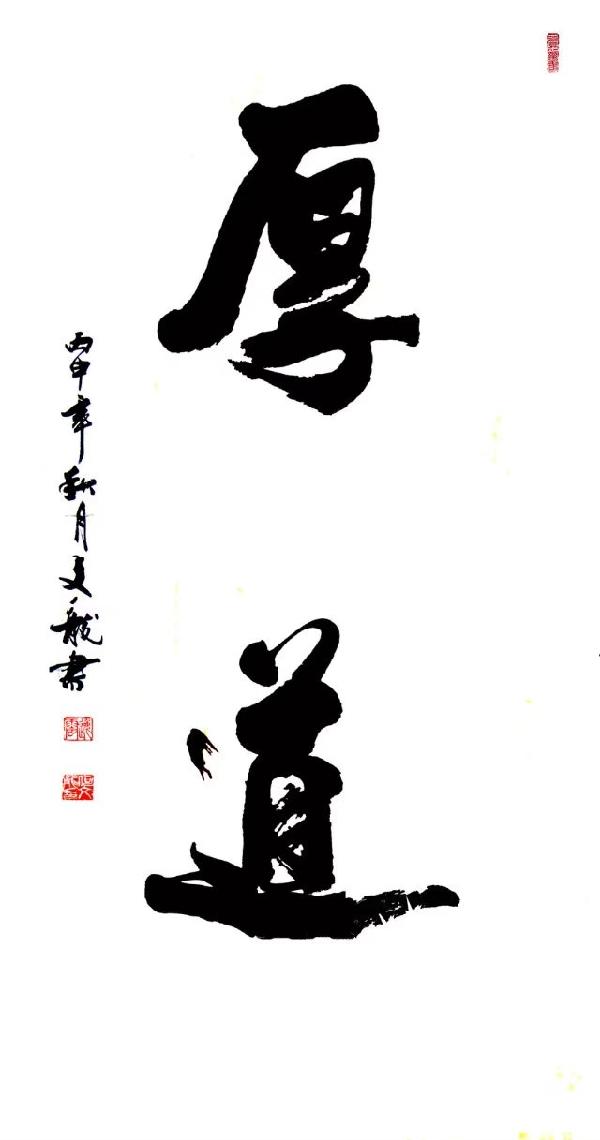 厚道
丙申年秋月文龍書